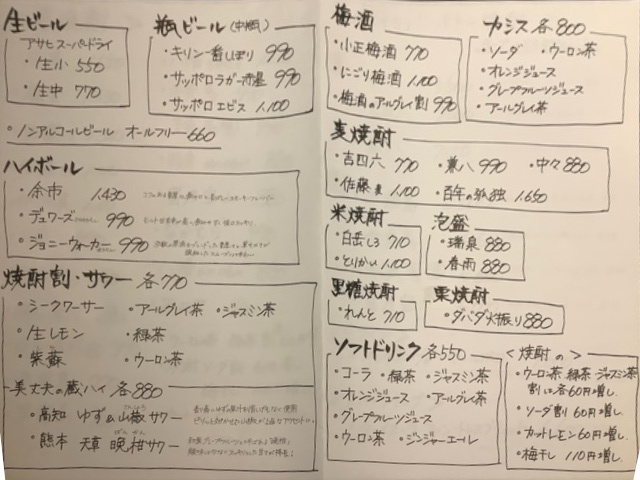 生ビール
アサヒスーパードライ
・生小 550
・生中 770
瓶ビール(中瓶)
・キリン一番しぼり 990
・サッポロラガー赤星 990
・サッポロエビス 1.100
・ノンアルコールビール オールフリー 660
ハイボール
・余市 1.430
・デュワーズ 990
・ジョニーウォーカー 990
焼酎割・サワー 各770
・シークワーサー ・アールグレイ茶 ・ジャスミン茶
・生レモン ・緑茶
・紫蘇 ・ウーロン茶
美丈夫の蔵ハイ 各880
・高知 ゆず&山椒サワー
・熊本 天草 晩柑サワー
梅酒
・小正梅酒 770
・にごり梅酒 1.100
・梅酒のアールグレイ割 990
カシス 各800
・ソーダ ・ウーロン茶
・オレンジジュース
・グレープフルーツジュース
・アールグレイ茶
麦焼酎
・吉四六 770 ・兼八 990 ・中々 880
・佐藤 麦 1.100 ・百年の孤独 1.650
米焼酎
・白岳しろ 710
・とりかい 1.100
泡盛
・瑞泉 880
・春雨 880
黒糖焼酎
・れんと 710
栗焼酎
・ダバダ火振り 880
ソフトドリンク 各550
・コーラ ・緑茶 ・ジャスミン茶
・オレンジジュース ・アールグレイ茶
・グレープフルーツジュース
・ウーロン茶 ・ジンジャーエール
<焼酎の>
・ウーロン茶 緑茶 ジャスミン茶
割は各60円増し.
・ソーダ割 60円増し.
・カットレモン 60円増し.
・梅干し 110円増し.